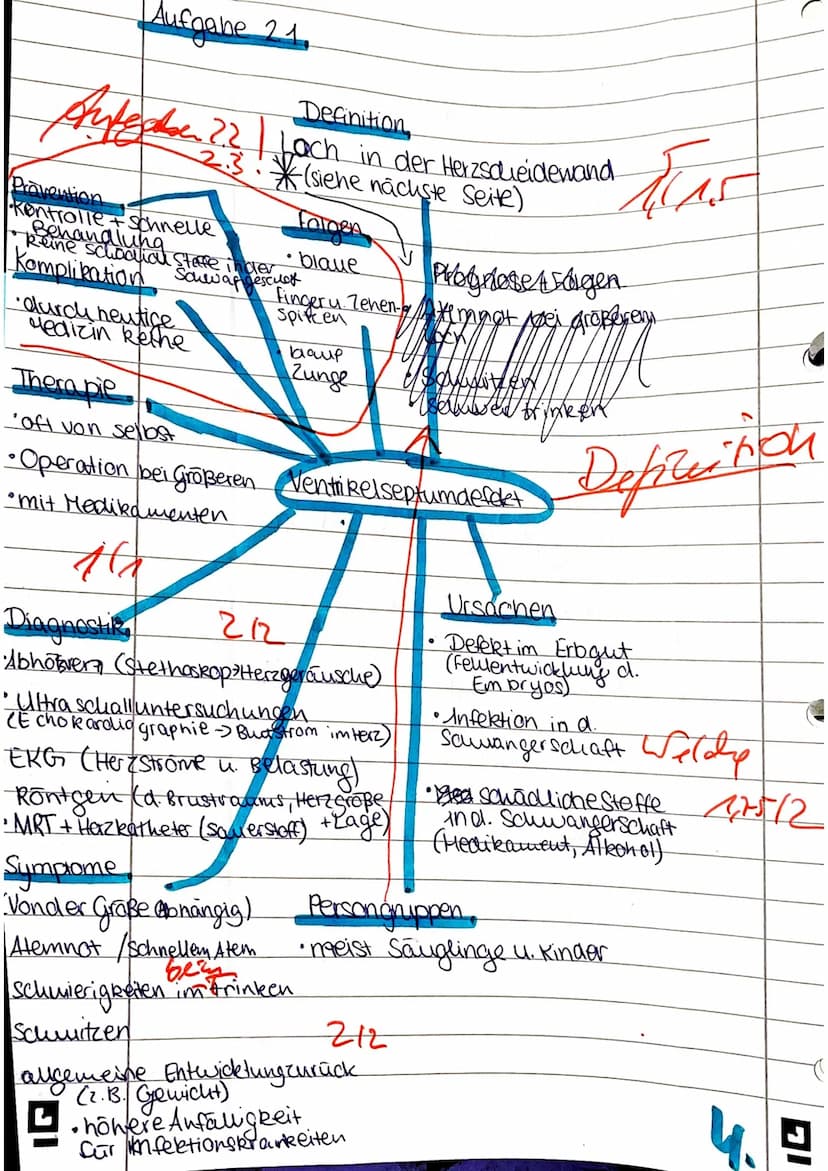 Aufgabe 2.1.
Definition
Aufgaben 2.2!
2.3.
Loch in der Herzscheidewand
*(siehe nächste Seite)
1,5/1,5
Prävention
• Kontrolle + schnelle
Behandlung
• Keine schädlich Stoffe in der
Schwangerschaft
Komplikation
• durch heutige
Medizin keine
Folgen
• blaue
Finger u. Zehen-
spitzen
• blaue
Zunge
Prognose + Folgen
Atemnot bei größerem
• Schwitzen
• schwer trinken
Therapie
• oft von selbst
• Operation bei Größeren
• mit Medikamenten
1/1
Ventrikelseptumdefekt
Definition
Diagnostik
2/2
• Abhören (Stethoskop→Herzgeräusche)
• Ultraschalluntersuchungen
(Echokardiographie → Blutstrom im Herz)
EKG (Herzströme u. Belastung)
Röntgen (d. Brustraums, Herzgröße
+ Lage)
• MRT + Herzkatheter (Sauerstoff)
Ursachen
• Defekt im Erbgut
(Fehlentwicklung d.
Embryos)
• Infektion in d.
Schwangerschaft
Welche
• schädliche Stoffe
in d. Schwangerschaft
(Medikament, Alkohol)
1,75/2
Symptome
(Von der Größe abhängig)
Atemnot / schnellem Atem
beim
Schwierigkeiten im trinken
Schwitzen
2/2
allgemeine Entwicklung zurück
(z.B. Gewicht)
• höhere Anfälligkeit
für Infektionskrankheiten
Persongruppen
• meist Säuglinge u. Kinder
4.